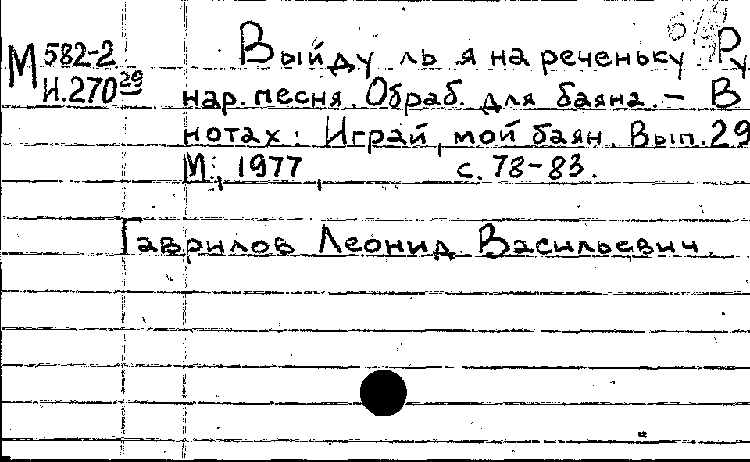 М 582-2
И.270 29
Выйду ль я на реченьку. Ру
нар. песня. Обраб. для баяна. – В
нотах: Играй, мой баян. Вып. 29
М., 1977, с. 78-83.
Гаврилов Леонид Васильевич.